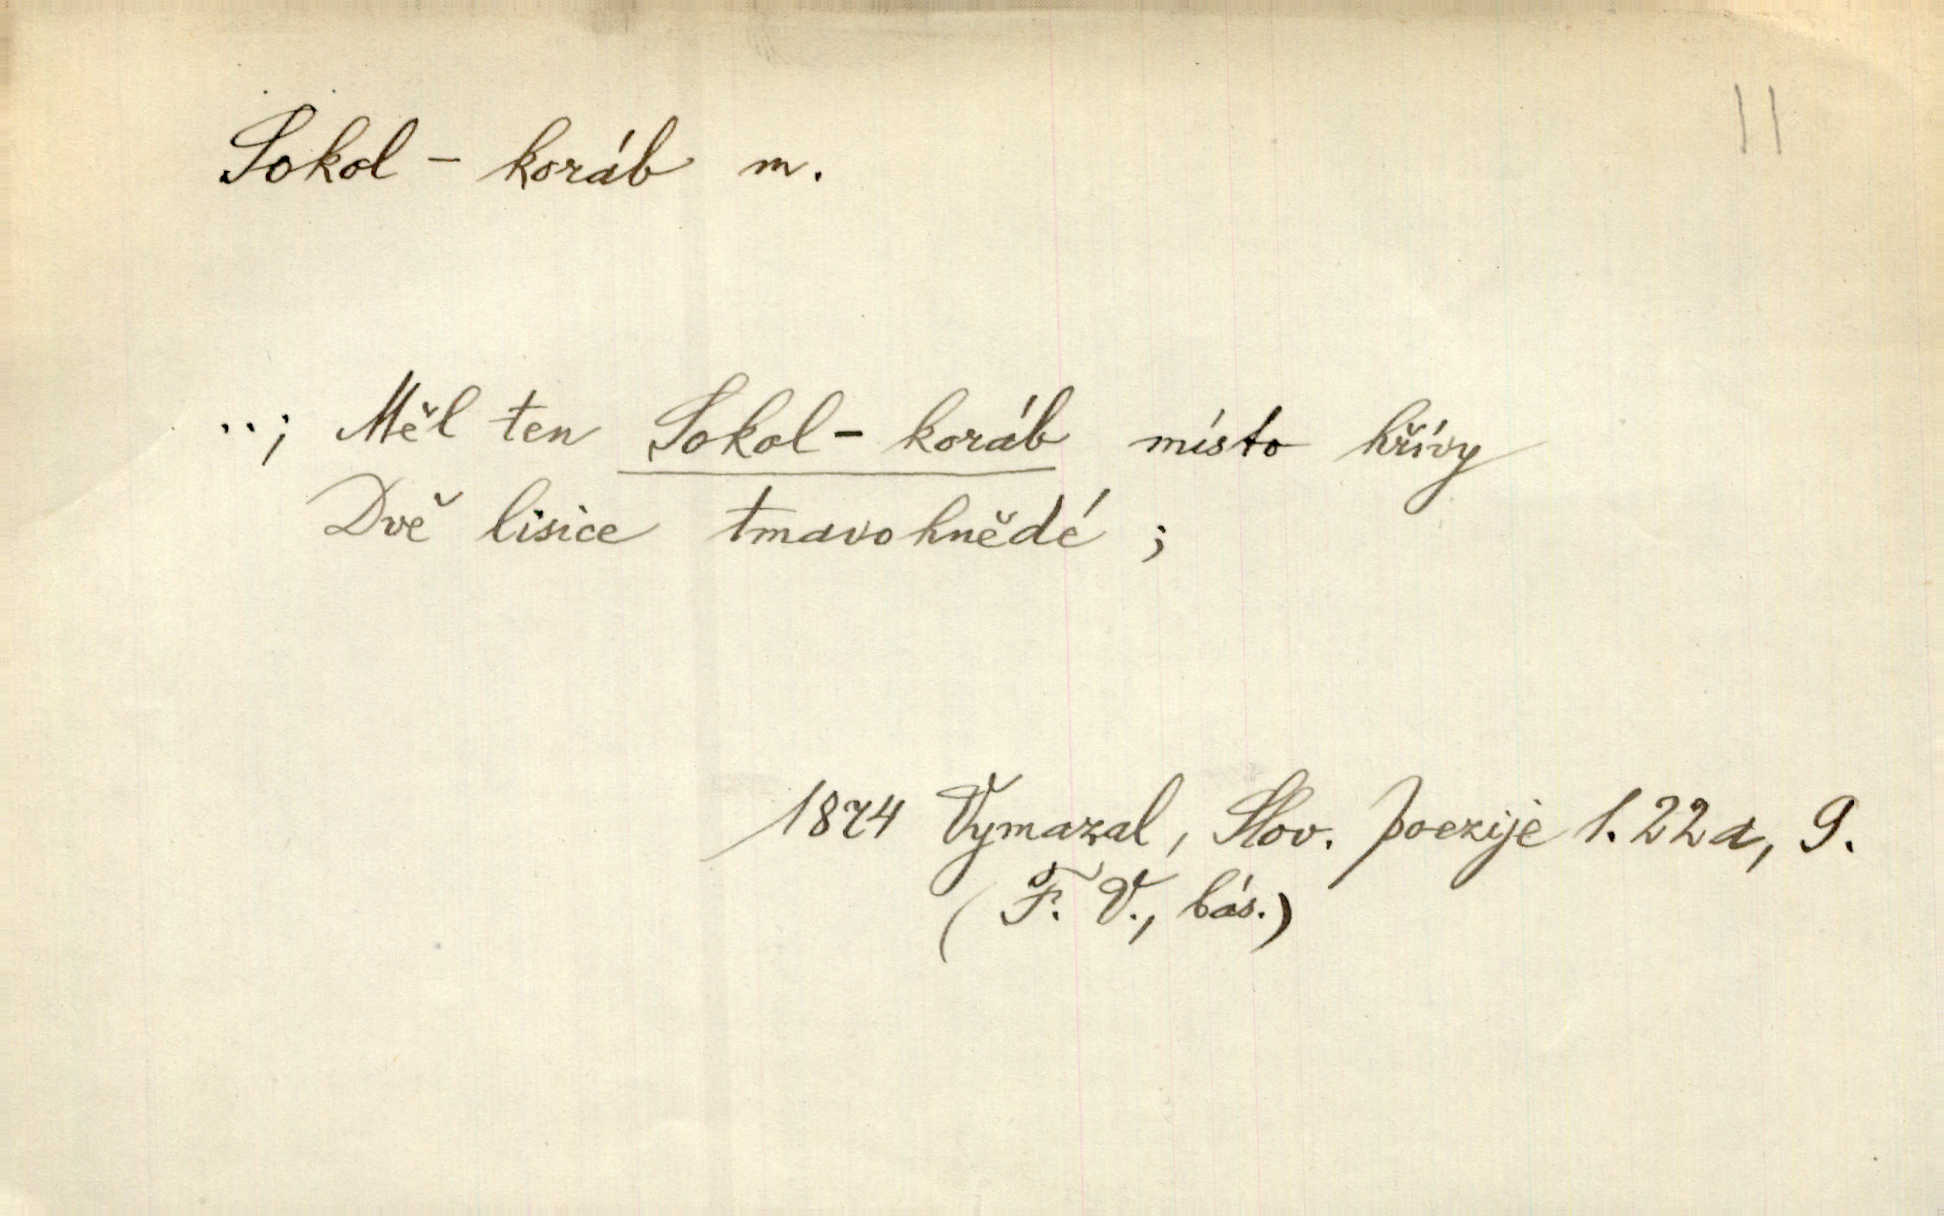 Sokol - koráb m.
11
..; Měl ten Sokol - koráb místo hřívy
Dvě lisice tmavohnědé ;
1874 Vymazal, Slov. poezije 1. 22a, 9.
( F. V., bás.)